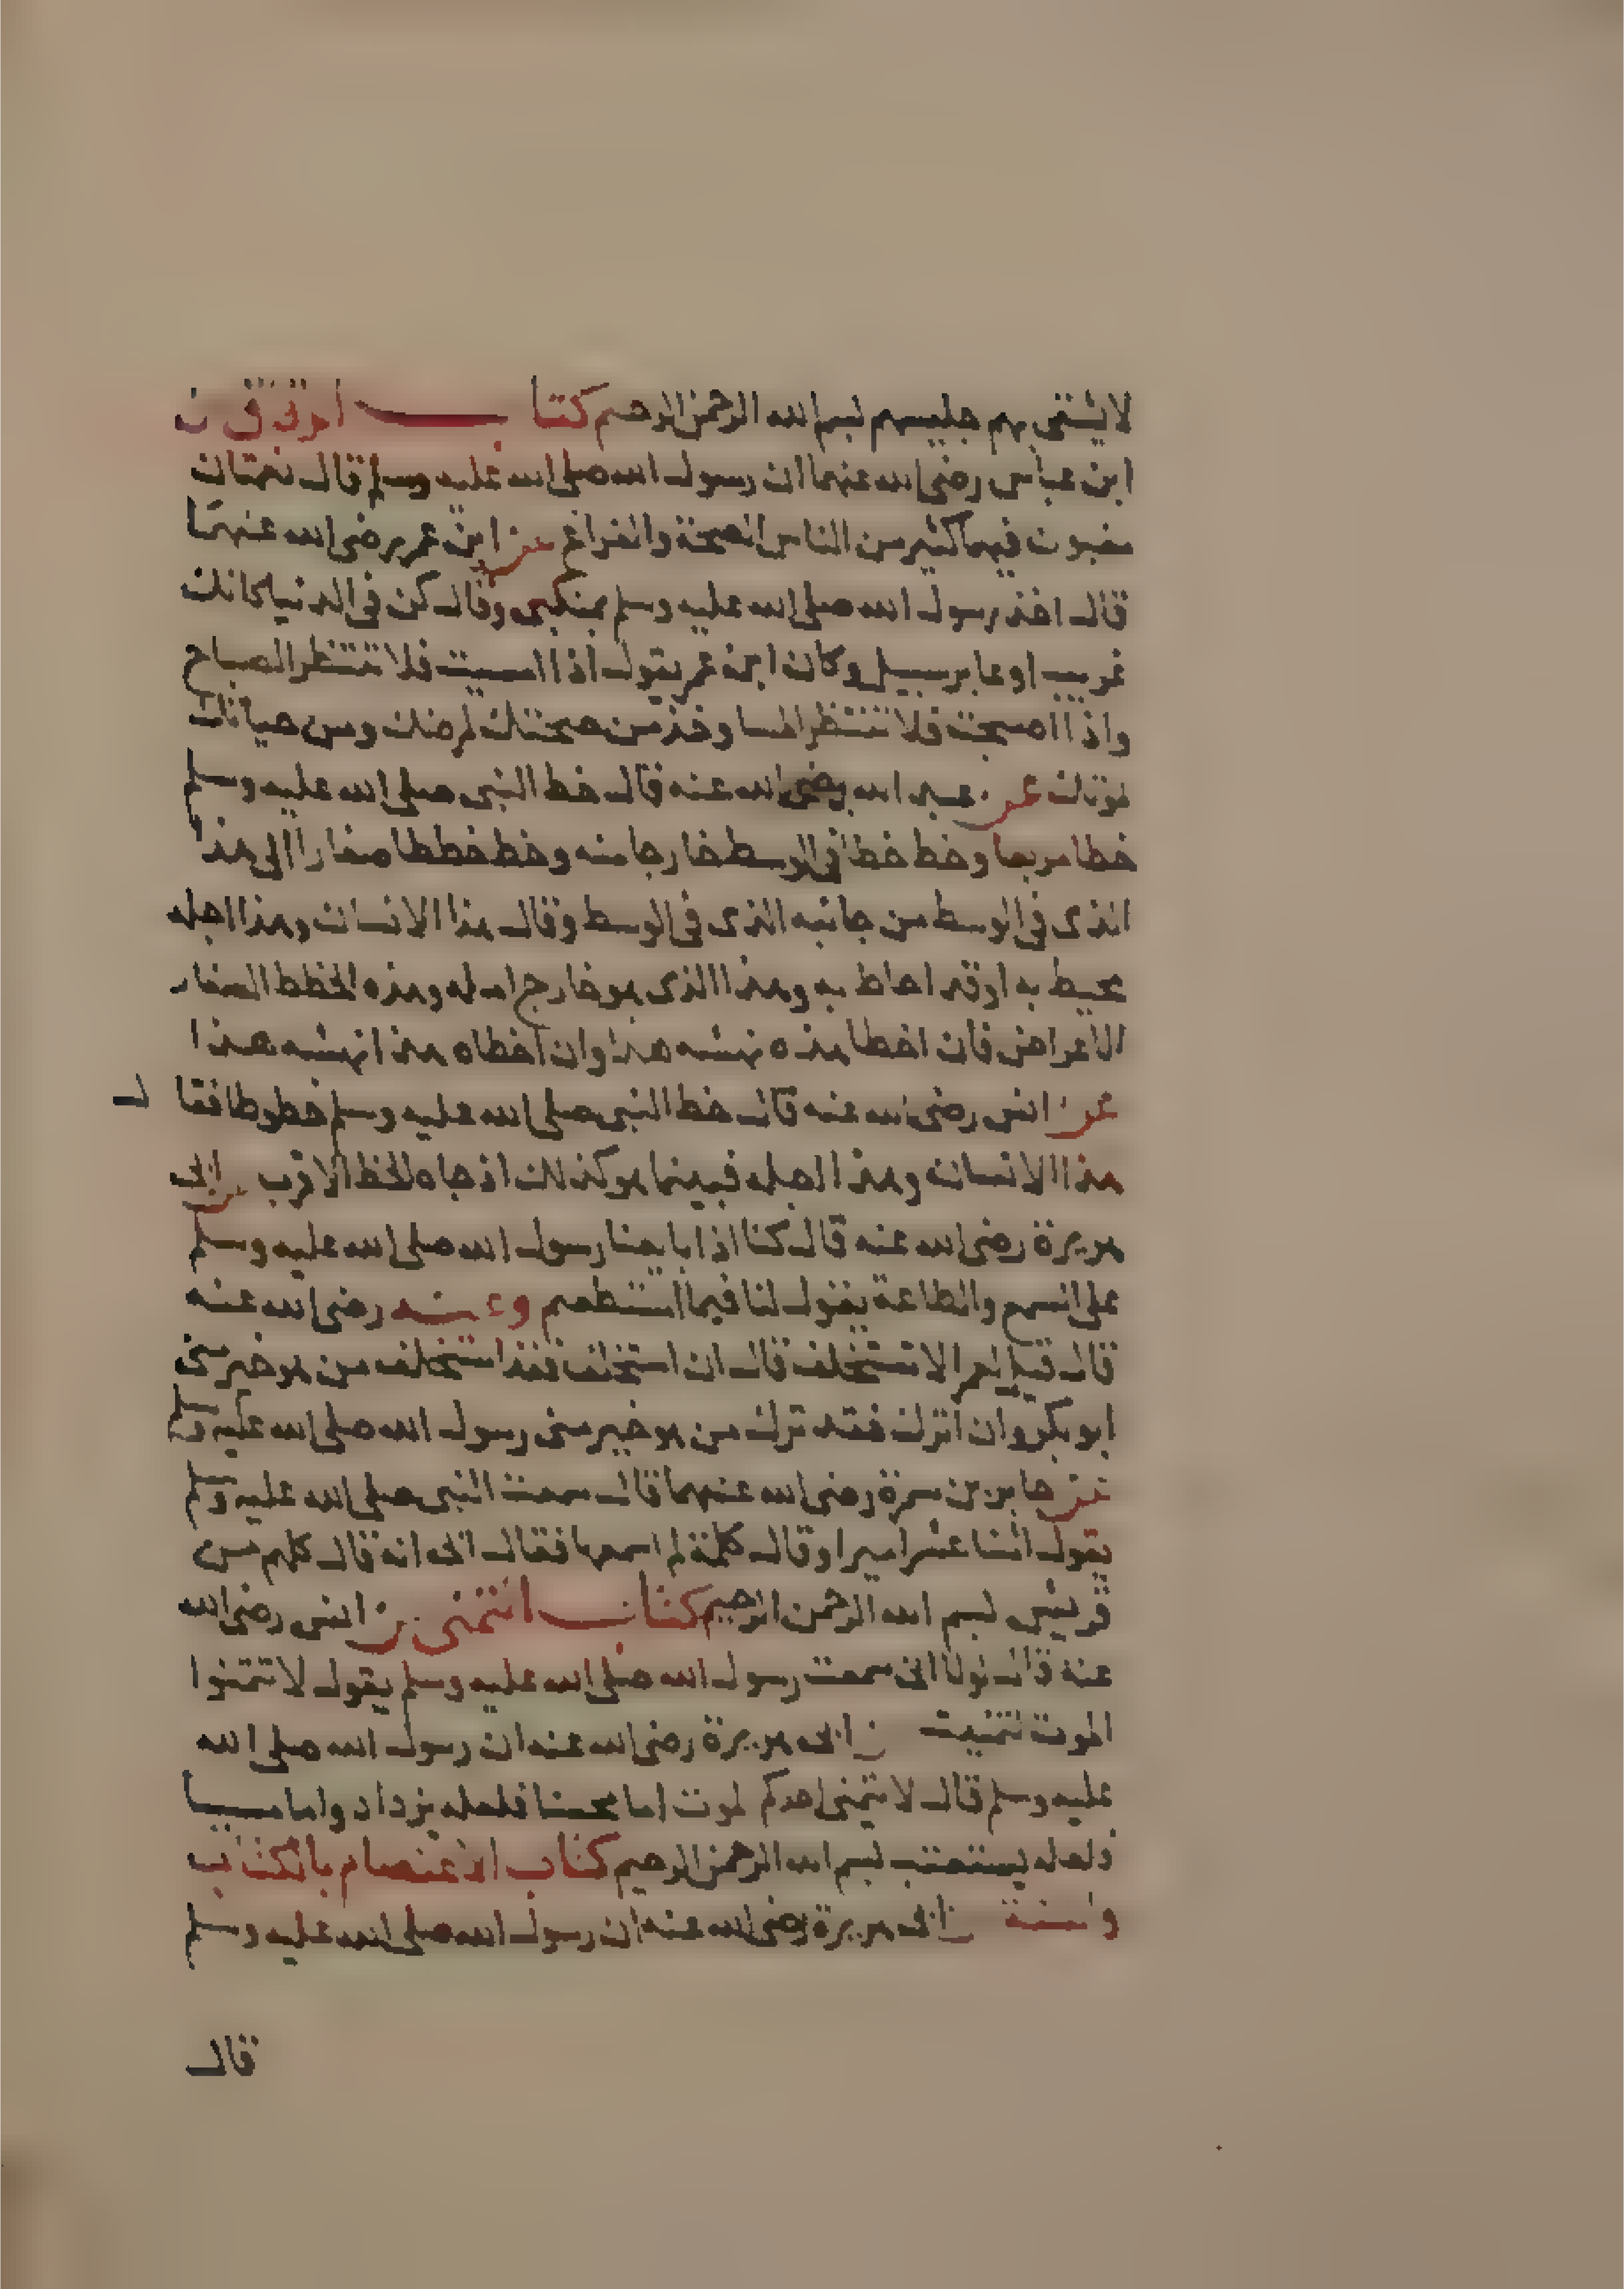 لا يشقى بهم جليسهم بسم الله الرحمن الرحيم كتاب الرقاق عن
ابن عباس رضى الله عنهما ان رسول الله صلى الله عليه وسلم قال نعمتان
مغبون فيهما كثير من الناس الصحة والفراغ عن ابن عمر رضى الله عنهما
قال اخذ رسول الله صلى الله عليه وسلم بمنكبى وقال كن فى الدنيا كانك
غريب او عابر سبيل وكان ابن عمر يقول اذا امسيت فلا تنتظر الصباح
واذا اصبحت فلا تنتظر المسا وخذ من صحتك لمرضك ومن حياتك
لموتك عن عبد الله رضى الله عنه قال خط النبى صلى الله عليه وسلم
خطا مربعا وخط خطا فى الوسط خارجا منه وخط خططا صغارا الى هذا
الذى فى الوسط من جانبه الذى فى الوسط وقال هذا الانسان وهذا اجله
محيط به او قد احاط به وهذا الذى هو خارج امله وهذه الخطط الصغار
الاعراض فان اخطا هذه نهشه هذا وان اخطاه هذا نهشه هذا
عن انس رضى الله عنه قال خط النبى صلى الله عليه وسلم خطوطا فقال
هذا الانسان وهذا اجله فبينما هو كذلك اذ جاه الخط الاقرب عن ابى
هريرة رضى الله عنه قال كنا اذا بايعنا رسول الله صلى الله عليه وسلم
على السمع والطاعة يقول لنا فيما استطعتم وعنه رضى الله عنه
قال قيل لعمر الا تستخلف قال ان استخلف فقد استخلف من هو خير منى
ابو بكر وان اترك فقد ترك من هو خير منى رسول الله صلى الله عليه وسلم
عن جابر بن سمرة رضى الله عنهما قال سمعت النبى صلى الله عليه وسلم
يقول اثنا عشر اميرا وقال كلمة لم اسمعها فقال ابى انه قال كلهم من
قريش بسم الله الرحمن الرحيم كتاب التمنى عن انس رضى الله
عنه قال لولا انى سمعت رسول الله صلى الله عليه وسلم يقول لا تتمنوا
الموت لتمنيت عن ابى هريرة رضى الله عنه ان رسول الله صلى الله
عليه وسلم قال لا يتمنى احدكم الموت اما محسنا فلعله يزداد واما مسيا
فلعله يستعتب بسم الله الرحمن الرحيم كتاب الاعتصام بالكتاب
والسنة عن ابى هريرة رضى الله عنه ان رسول الله صلى الله عليه وسلم
قال